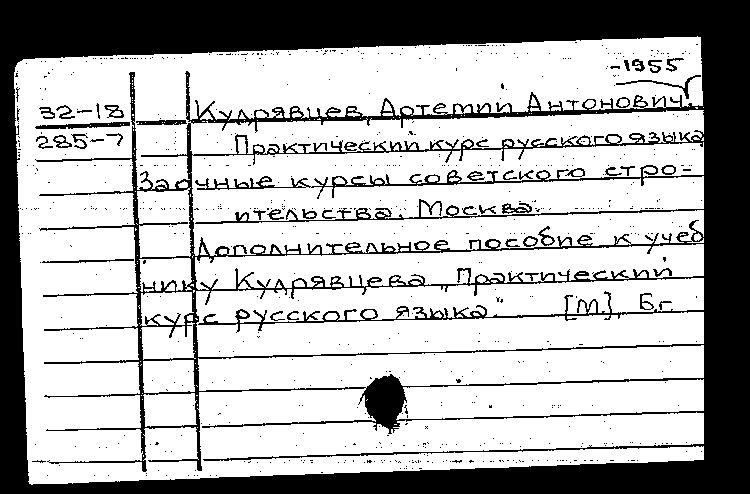 -1955
32-18 Кудрявцев, Артемий Антонович.
285-7 Практический курс русского языка
Заочные курсы советского стро=
ительства. Москва.
Дополнительное пособие к учеб
нику Кудрявцева „Практический
курс русского языка." [М.], Б.г.